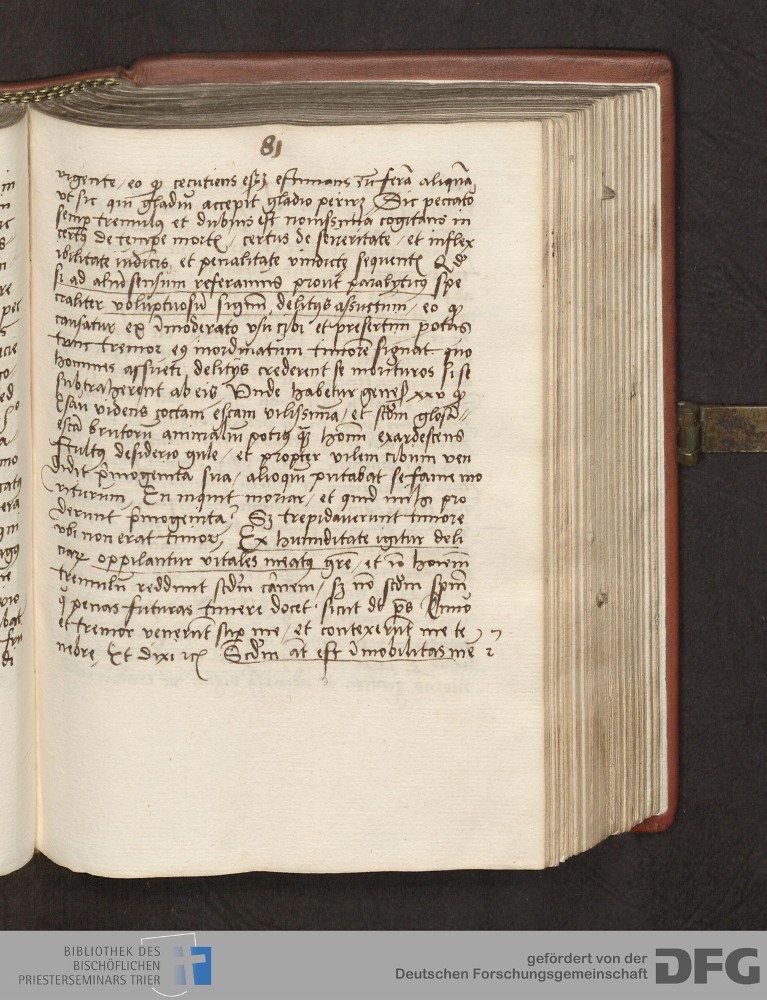 81
urgente / eo qp cecutiens estimans feram aliquam
ut sic gladiu accepit gladio Sic peccator
semp tremulus et dubius est novissima cogitans in
certus de tempe mortis / certus de severitate / et inflex
ibilitate iudicis et penalitate vindicte sequentis Qd
si ad aliud sensum referamus prout paraliticus spe
cialiter voluptuosu delitijs assuetum / eo qp
causatur ex immoderato usu cibi et presertim potus
tunc tremor eius inordinatum timore signat quo
homines assueti delitijs crederent se morituros si se
subtraherent ab eis Unde habetur genes xxv qp
Esau videns coctam escam vilissima / et scdm glosa
esca brutoru animaliu potius qp homi exardescens
stultus desiderio gule / et propter vilem cibum ven
didit primogenita sua / alioquin putabat se fame mo
riturum / En inquit moriar / et quid mihi pro
derunt primogenita? Sz trepidaverunt timore
ubi non erat timor / Ex humiditate igitur deli
opppilantur vitales meatus / et io hoiem
tremulu reddunt scdm carnem / sz no scdm spm
q penas futuras timere docet sicut dt ps Timor
et tremor venerut sup me / et contexerut me te
nebre / Et dixi Scdm at est imobilitas me
BIBLIOTHEK DES
BISCHÖFLICHEN
PRIESTERSEMINARS TRIER
gefördert von der
Deutschen Forschungsgemeinschaft
DFG